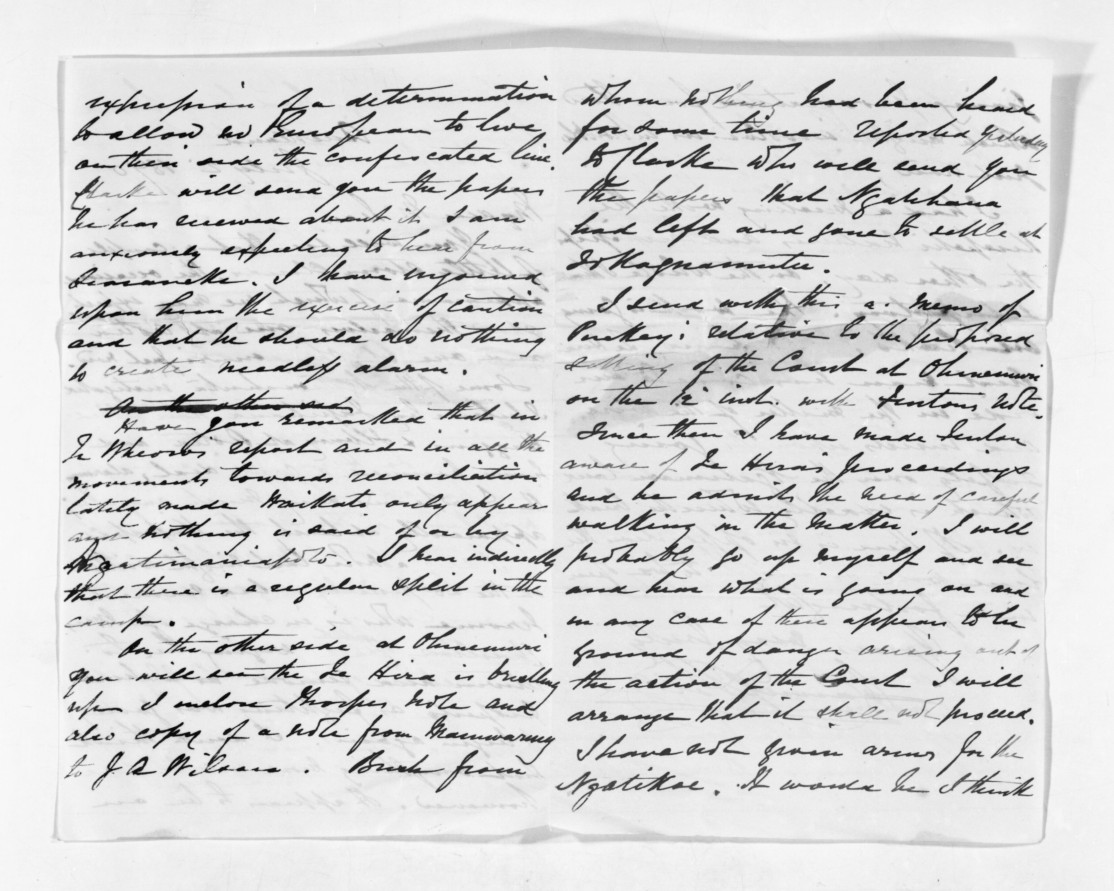 expression of a determination
to allow no European to live
on their side the confiscated line.
Clarke will send you the papers
he has received about it. I am
anxiously expecting to hear from
Searancke. I have enjoined
upon him the exercise of caution
and that he should do nothing
to create needless alarm.
On the other sid
Have you remarked that in
Te Wheoro's report and in all the
movements towards reconciliation
lately made Waikato only appear
and nothing is said of or by
Ngatimaniapoto. I hear indirectly
that there is a regular split in the
camp.
On the other side at Ohinemuri
you will see the Te Hira is bristling
up I enclose Thorpes note and
also copy of a note from Mainwaring
to J. A Wilson. Burk from
whom nothing had been heard
for some time reported yesterday
to Clarke who will send you
the papers that Ngatihaua
had left and gone to settle at
Tokagnamutu.
I send with this a memo of
Puckey: relative to the proposed
sitting of the Court at Ohinemuri
on the 12 inst. with Fentons note.
Since then I have made Fenton
aware of Te Hira's proceedings
and he admits the need of careful
walking in the matter. I will
probably go up myself and see
and hear what is going on and
in any case if there appears to be
ground of danger arising out of
the action of the Court I will
arrange that it shall not proceed.
I have not given arms for the
Ngatikoe. It would be I think